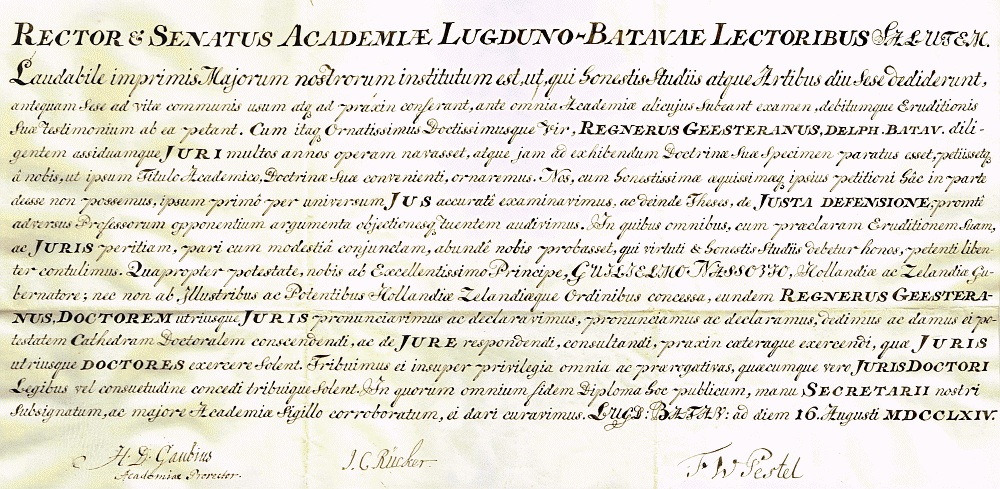 RECTOR & SENATUS ACADEMIÆ LUGDUNO-BATAVAE LECTORIBUS SALUTEM.
Laudabile imprimis Majorum nostrorum institutum est, ut, qui honestis Studiis atque Artibus diu Sese dediderunt,
antequam Sese ad vitæ communis usum atq ad praxin conferant, ante omnia Academiæ alicujus Subeant examen, debitumque Eruditionis
Suæ testimonium ab ea petant. Cum itaq Ornatissimus Doctissimusque Vir, REGNERUS GEESTERANUS, DELPH. BATAV. dili-
gentem assiduamque JURI multos annos operam navasset, atque jam ad exhibendum Doctrinæ Suæ Specimen paratus esset, petiissetq
â nobis, ut ipsum Titulo Academico, Doctrinæ Suæ convenienti, ornaremus. Nos, cum honestissimæ æquissimæq ipsius petitioni hâc in parte
deesse non possemus, ipsum primò per universum JUS accuratè examinavimus, ac deinde Theses, de JUSTA DEFENSIONE, promtè
adversus Professorum opponentium argumenta objectionesq tuentem audivimus. In quibus omnibus, cum præclaram Eruditionem Suam,
ac JURIS peritiam, pari cum modestiâ conjunctam, abundè nobis probasset, qui virtuti & honestis Studiis debetur honos, petenti liben-
ter contulimus. Quapropter potestate, nobis ab Excellentissimo Principe, GUILIELMO NASSOVIO, Hollandiæ ac Zelandiæ Gu-
bernatore; nec non ab Illustribus ac Potentibus Hollandiæ Zelandiæque Ordinibus concessa, eundem REGNERUS GEESTERA-
NUS, DOCTOREM utriusque JURIS pronunciavimus ac declaravimus, pronunciamus ac declaramus, dedimus ac damus ei po-
testatem Cathedram Doctoralem conscendendi, ac de JURE respondendi, consultandi, praxin cæteraque exercendi, quæ JURIS
utriusque DOCTORES exercere Solent. Tribuimus ei insuper privilegia omnia ac prærogativas, quæcumque vero, JURIS DOCTORI
Legibus vel consuetudine concedi tribuique Solent. In quorum omnium fidem Diploma hoc publicum, manu SECRETARII nostri
Subsignatum, ac majore Academiæ Sigillo corroboratum, ei dari curavimus. LUGD: BATAV: ad diem 16. Augusti MDCCLXIV.
H. D. Gaubius J. C. Rücker. F W Pestel
Academiae Prorector.